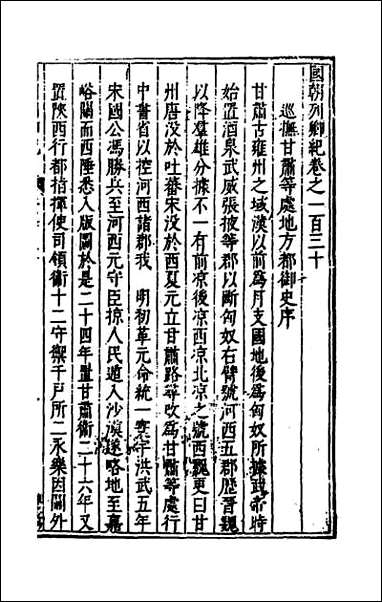 國朝列卿紀卷之一百三十
巡撫甘肅等處地方都御史序
甘肅古雍州之域漢以前為月支國地後為匈奴所據武帝時
始置酒泉武威張掖等郡以斷匈奴右臂號河西五郡歷晉魏
以降羣雄分據不一有前涼後涼西涼北涼之號西魏更曰甘
州唐没於吐蕃宋没於西夏元立甘肅路尋改為甘肅等處行
中書省以控河西諸郡我 明初革元命統一寰宇洪武五年
宋國公馮勝兵至河西元守臣掠人民遁入沙漠遂略地至嘉
峪關而西陲悉入版圖於是二十四年置甘肅衛二十六年又
置陝西行都指揮使司領衛十二守禦千戶所二永樂因關外